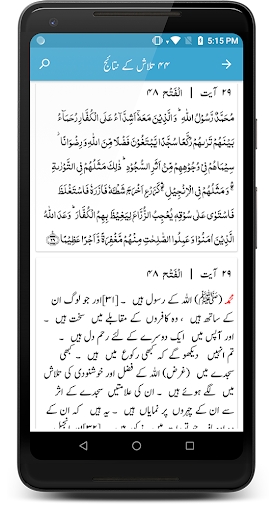 5:15 PM
۴۴ تلاش کے نتائج
۲۹ آیت | الْفَتْح ۴۸
مُحَمَّدٌ رَّسُوْلُ اللّٰهِ ؕ وَالَّذِیْنَ مَعَهٗۤ اَشِدَّآءُ عَلَی الْكُفَّارِ رُحَمَآءُ
بَیْنَهُمْ تَرٰىهُمْ رُكَّعًا سُجَّدًا یَّبْتَغُوْنَ فَضْلًا مِّنَ اللّٰهِ وَرِضْوَانًا ؗ
سِیْمَاهُمْ فِیْ وُجُوْهِهِمْ مِّنْ اَثَرِ السُّجُوْدِ ؕ ذٰلِكَ مَثَلُهُمْ فِی التَّوْرٰىةِ ۛۖ
وَمَثَلُهُمْ فِی الْاِنْجِیْلِ ۛ۫ۚ كَزَرْعٍ اَخْرَجَ شَطْـَٔهٗ فَاٰزَرَهٗ فَاسْتَغْلَظَ
فَاسْتَوٰی عَلٰی سُوْقِهٖ یُعْجِبُ الزُّرَّاعَ لِیَغِیْظَ بِهِمُ الْكُفَّارَ ؕ وَعَدَ اللّٰهُ
الَّذِیْنَ اٰمَنُوْا وَعَمِلُوا الصّٰلِحٰتِ مِنْهُمْ مَّغْفِرَةً وَّاَجْرًا عَظِیْمًا ﴿۲۹﴾
۲۹ آیت | الْفَتْح ۴۸
محمد (ﷺ) اللہ کے رسول ہیں ۔ [۳۱] اور جو لوگ ان
کے ساتھ ہیں ، وہ کافروں کے مقابلے میں سخت ہیں ۔
اور آپس میں ایک دوسرے کے لئے رحم دل ہیں ۔
تم انہیں دیکھو گے کہ کبھی رکوع میں ہیں ، کبھی
سجدے میں ، (غرض) اللہ کے فضل اور خوشنودی کی تلاش
میں لگے ہوئے ہیں ۔ ان کی علامتیں سجدے کے اثر
سے ان کے چہروں پر نمایاں ہیں ۔ یہ ہیں کہ ان کے